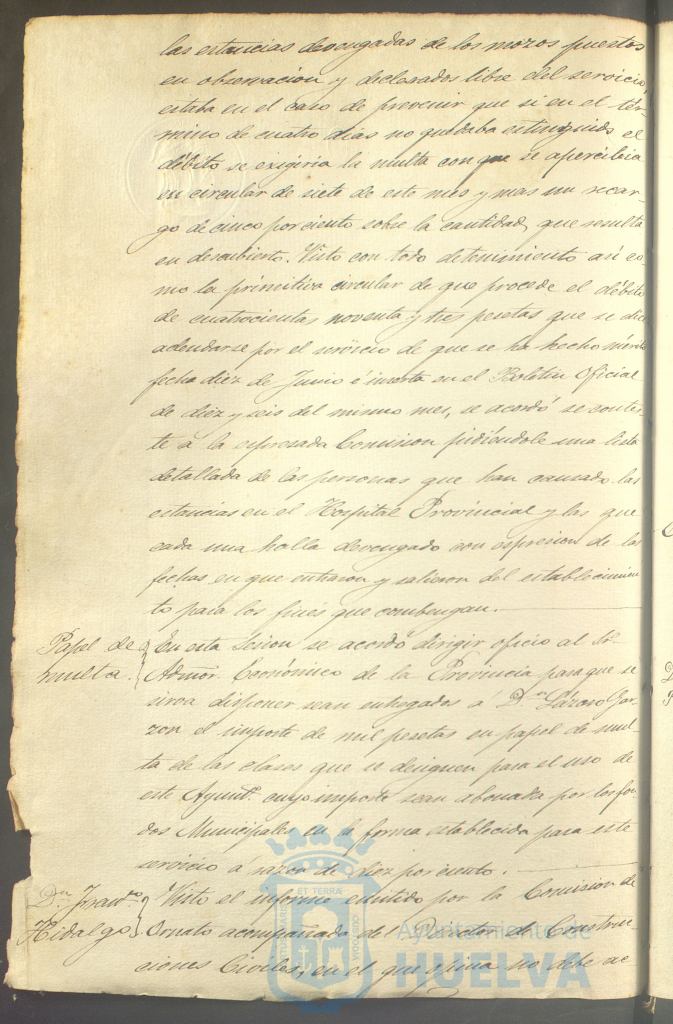 las estancias devengadas de los mozos puestos
en observacion y declarados libre del servicio,
estaba en el caso de prevenir que si en el tér-
mino de cuatro dias no quedaba estinguido el
débito se exigiria la multa con que se apercibia
en circular de siete de este mes y mas un recar-
go de cinco por ciento sobre la cantidad que resulta
en descubierto. Visto con todo detenimiento asi co-
mo la primitiva circular de que procede el débito
de cuatrocientas noventa y tres pesetas que se dice
adeudarse por el servicio de que se ha hecho mérito
fecha diez de Junio é inserta en el Boletin Oficial
de diez y seis del mismo mes, se acordó se contes-
te á la espresada Comision pidiéndole una lista
detallada de las personas que han causado las
estancias en el Hospital Provincial y las que
cada una halla devengado con espresion de las
fechas en que entraron y salieron del establecimien-
to para los fines que combengan.
Papel de
multa.
En esta Sesion se acordó dirigir oficio al Sr.
Admor. Económico de la Provincia para que se
sirva disponer sean entregados á Dn. Lázaro Gar-
zon el importe de mil pesetas en papel de mul-
ta de las clases que se designen para el uso de
este Ayunto. cuyo importe sean abonada por los fon-
dos Municipales en la forma establecida para este
servicio á razon de diez por ciento.
Dn. Franco.
Hidalgo
Visto el informe emitido por la Comision de
Ornato acompañada del Perito de Construc-
ciones Civiles, en el que opina no debe ac
Ayuntamiento de
HUELVA